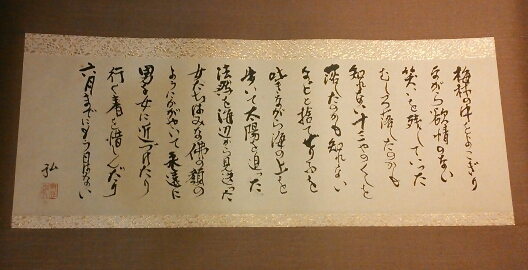 梅林の中をよこぎり
ながら欲情のない
笑いを残していった
むしろ渡したのかも
知れない十三やのくしを
落したのかも知れない
などと捨てぜりふを
吐きながら海の上を
歩いて太陽を追った
法然を海辺から見送った
女たちはみな佛の顔の
ようにかがやいて永遠に
男を女に近づけたり
行く春を惜しんだり
六月までにもう日がない
弘